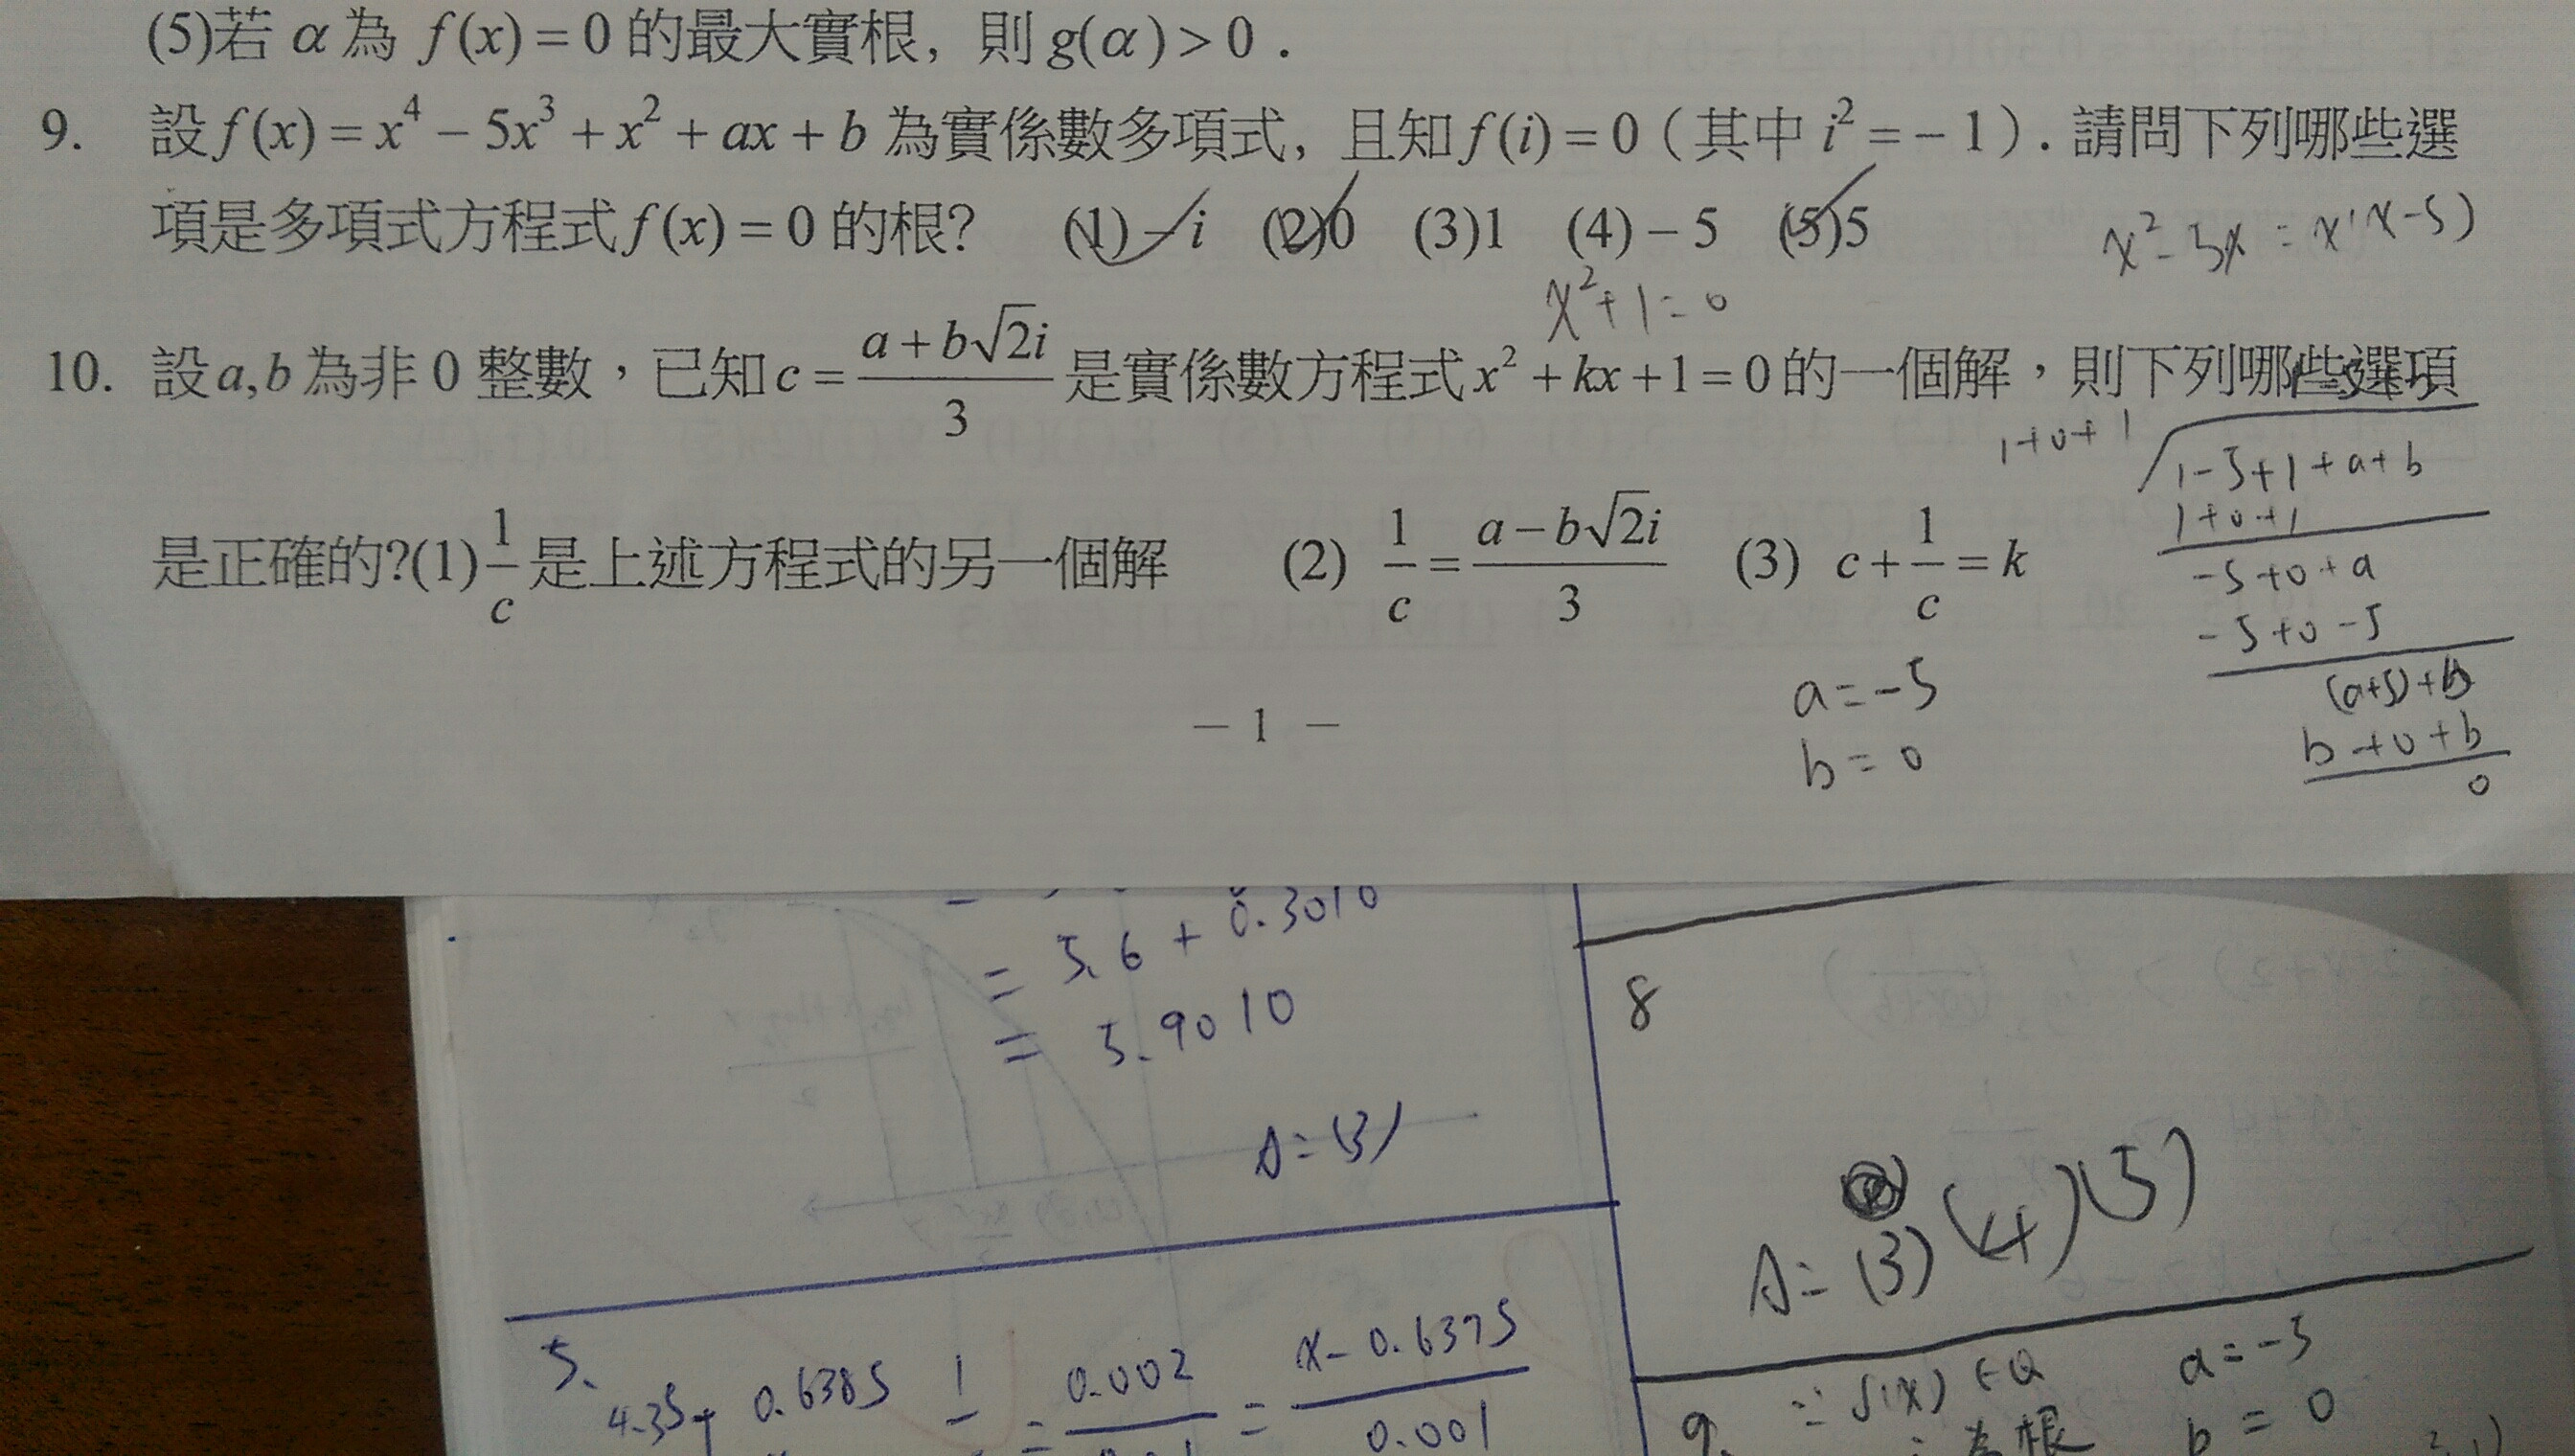 (5)若 α 為 f(x) = 0 的最大實根, 則 g(α) > 0 .
9. 設 f(x) = x⁴ − 5x³ + x² + ax + b 為實係數多項式, 且知 f(i) = 0 ( 其中 i² = − 1 ) . 請問下列哪些選
項是多項式方程式 f(x) = 0 的根? (1) − i (2)0 (3)1 (4) − 5 (5)5
x² - 5x = x(x-5)
x² + 1 = 0
10. 設 a, b 為非 0 整數,已知 c = (a + b√2i)/3 是實係數方程式 x² + kx + 1 = 0 的一個解,則下列哪些選項
1+0+1
1-5+1+a+b
1+0+1
是正確的?(1) 1/c 是上述方程式的另一個解 (2) 1/c = (a − b√2i)/3 (3) c + 1/c = k
-5+0+a
-5+0-5
(a+5)+b
b+0+b
0
a=-5
b=0
− 1 −
= 5.6 + 0.3010
= 5.9010
A=(3)
8
A=(3)(4)(5)
5.
4.35 0.6385
0.002
= x-0.6375
0.001
9.
∵ f(x)
為根
a=-5
b=0